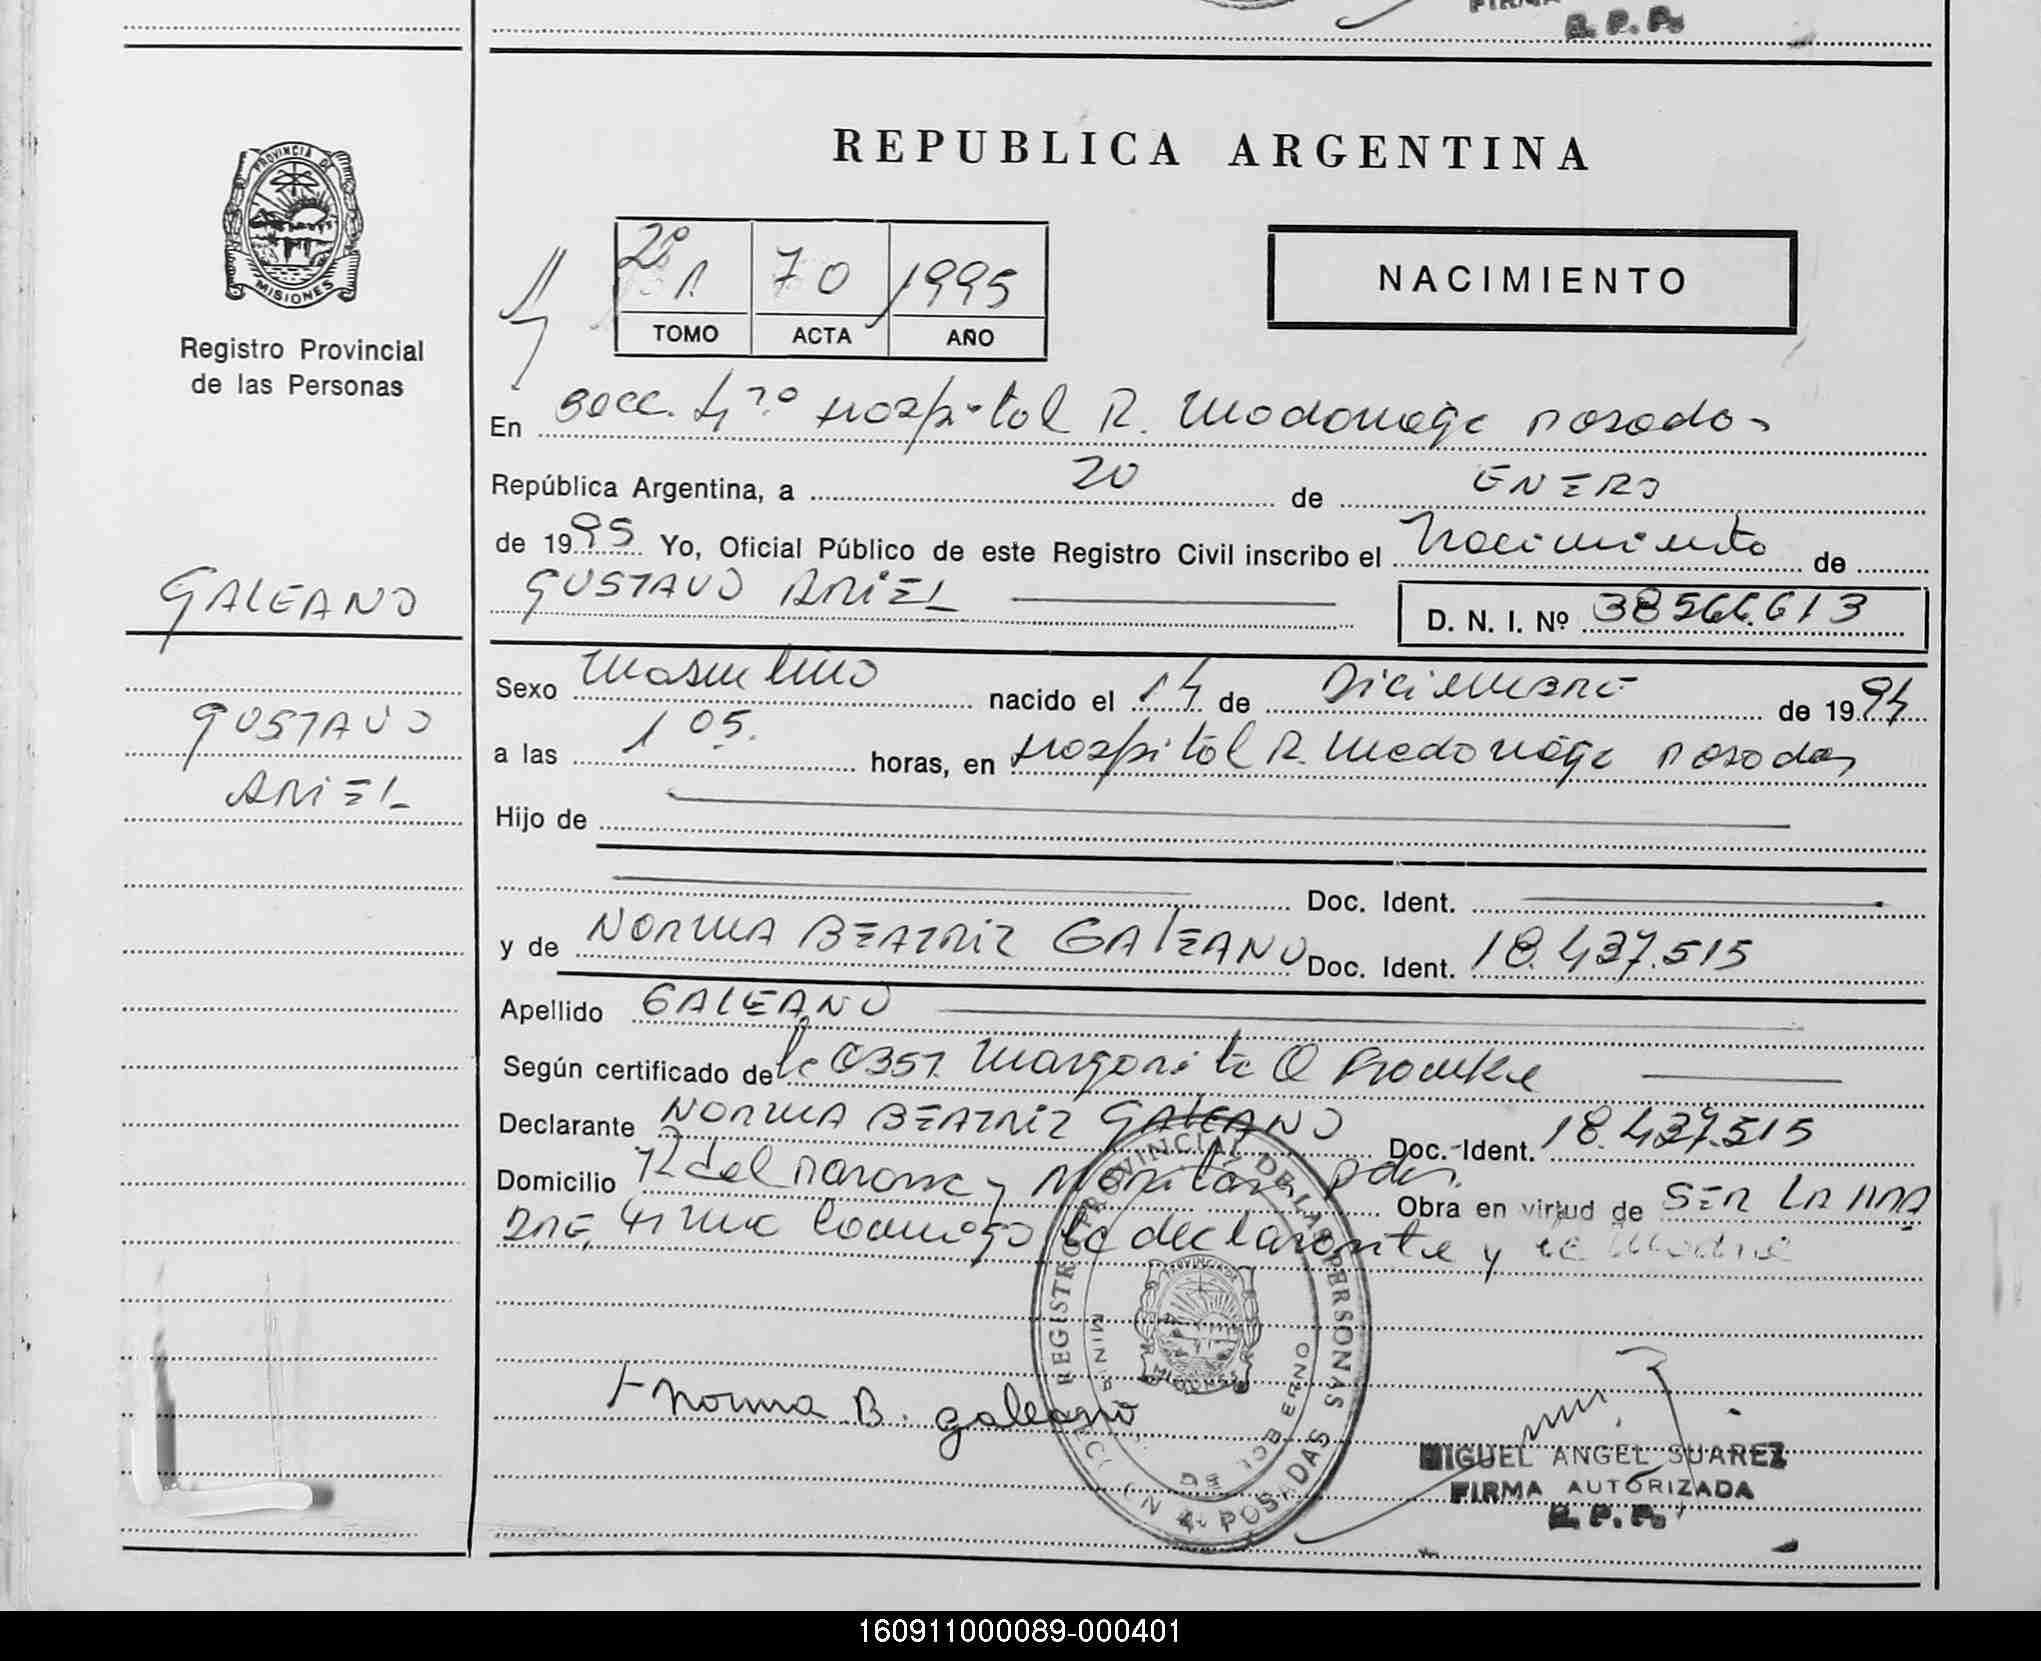 R. P. P.
REPUBLICA ARGENTINA
PROVINCIA DE
MISIONES
Registro Provincial
de las Personas
2º 1. 70 1995
TOMO ACTA AÑO
NACIMIENTO
En Secc. 4ª Hospital R. Madariaga Posadas
República Argentina, a 20 de ENERO
de 1995 Yo, Oficial Público de este Registro Civil inscribo el Nacimiento de
GALEANO
GUSTAVO ARIEL D. N. I. Nº 38566.613
Sexo Masculino nacido el 14 de Diciembre de 1994
GUSTAVO
ARIEL
a las 1 05. horas, en Hospital R. Madariaga Posadas
Hijo de
Doc. Ident.
y de NORMA BEATRIZ GALEANO Doc. Ident. 18.437.515
Apellido GALEANO
Según certificado de la Obst. Margarita
Declarante NORMA BEATRIZ GALEANO Doc.-Ident. 18.437.515
Domicilio Pdas. Obra en virtud de SER LA MA
DRE, firma conmigo la declarante y la Madre
REGISTRO PROVINCIAL DE LAS PERSONAS
PROVINCIA DE
MISIONES
POSADAS
Norma B. galeano
MIGUEL ANGEL SUAREZ
FIRMA AUTORIZADA
R. P. P.
160911000089-000401